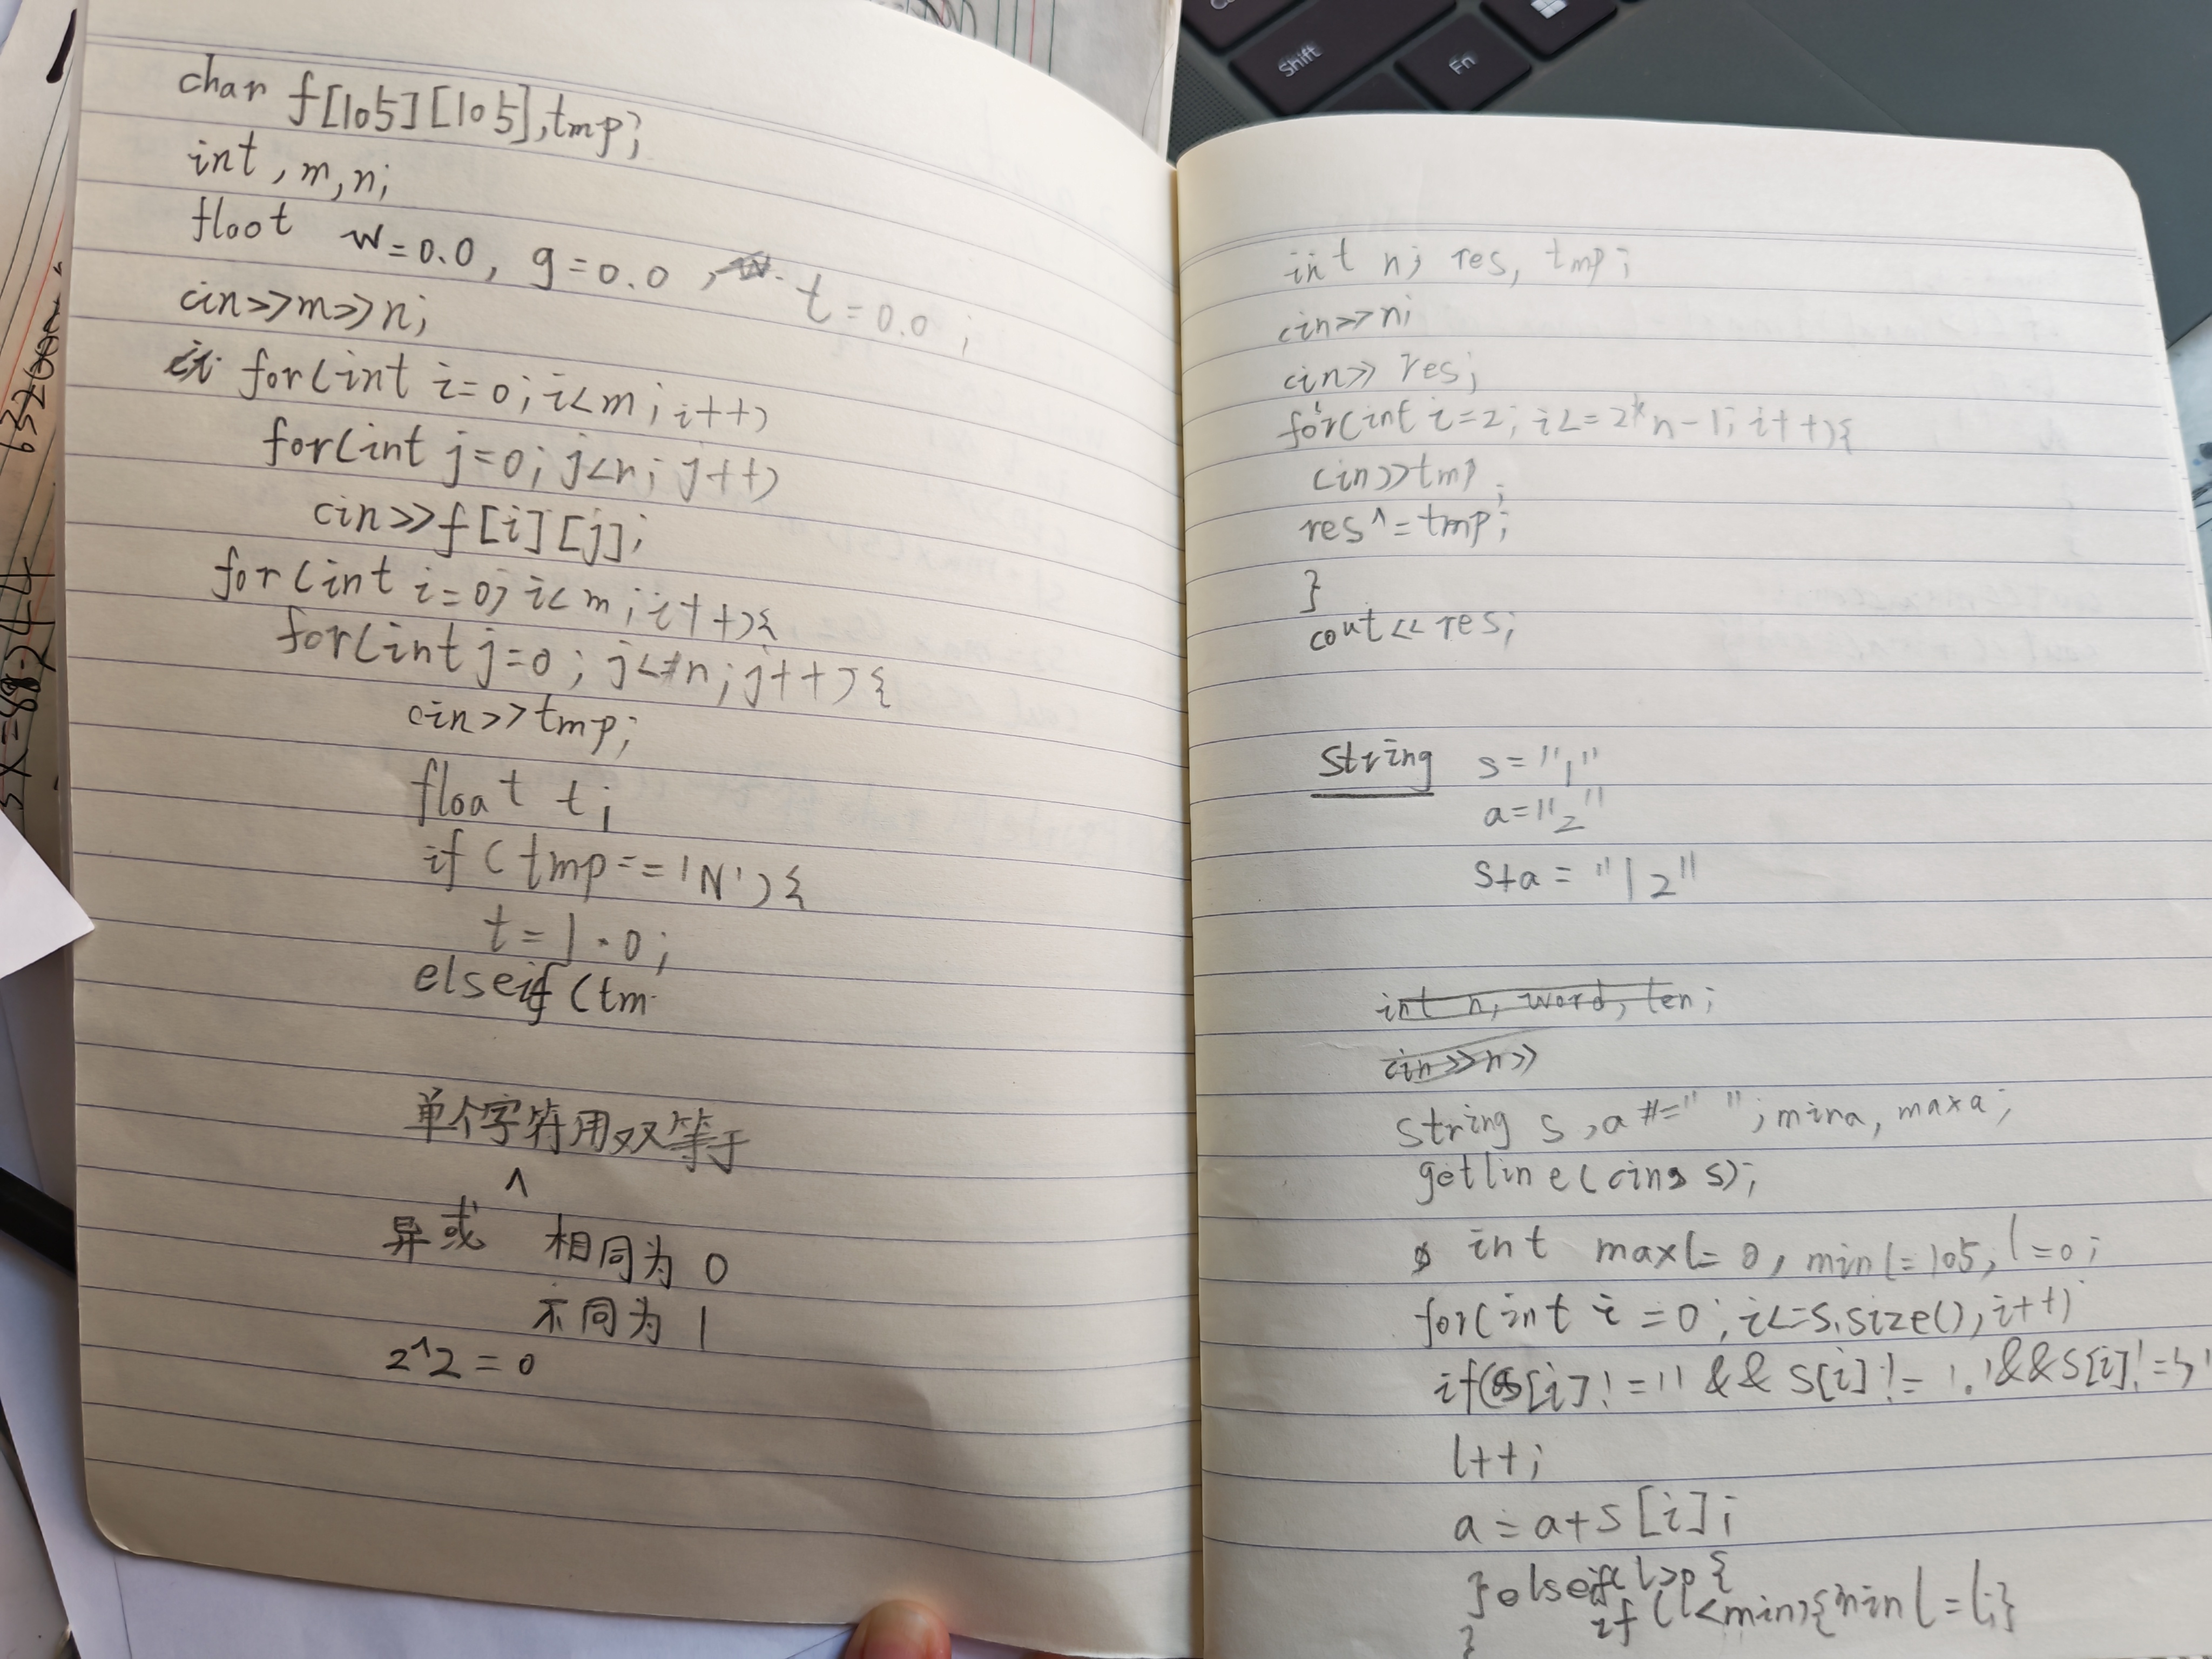 char f[105][105],tmp;
int , m,n;
floot w=0.0, g=0.0, t=0.0 ;
cin>>m>>n;
for(int i=0;i<m;i++)
for(int j=0;j<n;j++)
cin>>f[i][j];
for(int i=0;i<m;i++){
for(int j=0;j<n;j++){
cin>>tmp;
float t;
if(tmp=='N'){
t=1.0;
elseif(tm
单个字符用双等于
^
异或 相同为0
不同为1
2^2=0
6320000
5x=88244
Shift
Fn
int n; res, tmp;
cin>>n;
cin>> res;
for(int i=2;i<=2*n-1;i++){
cin>>tmp;
res^=tmp;
}
cout<<res;
string s="1"
a="2"
s+a="12"
int n, word, len;
cin>>n>>
string s,a=" ";mina, maxa;
getline(cin, s);
int maxl=0, minl=105, l=0;
for(int i=0;i<=s.size(),i++)
if(s[i]!='' && s[i]!='.'&&s[i]!=
l++;
a=a+s[i];
}elseif(l>0{
if(l<min){minl=l;}
}